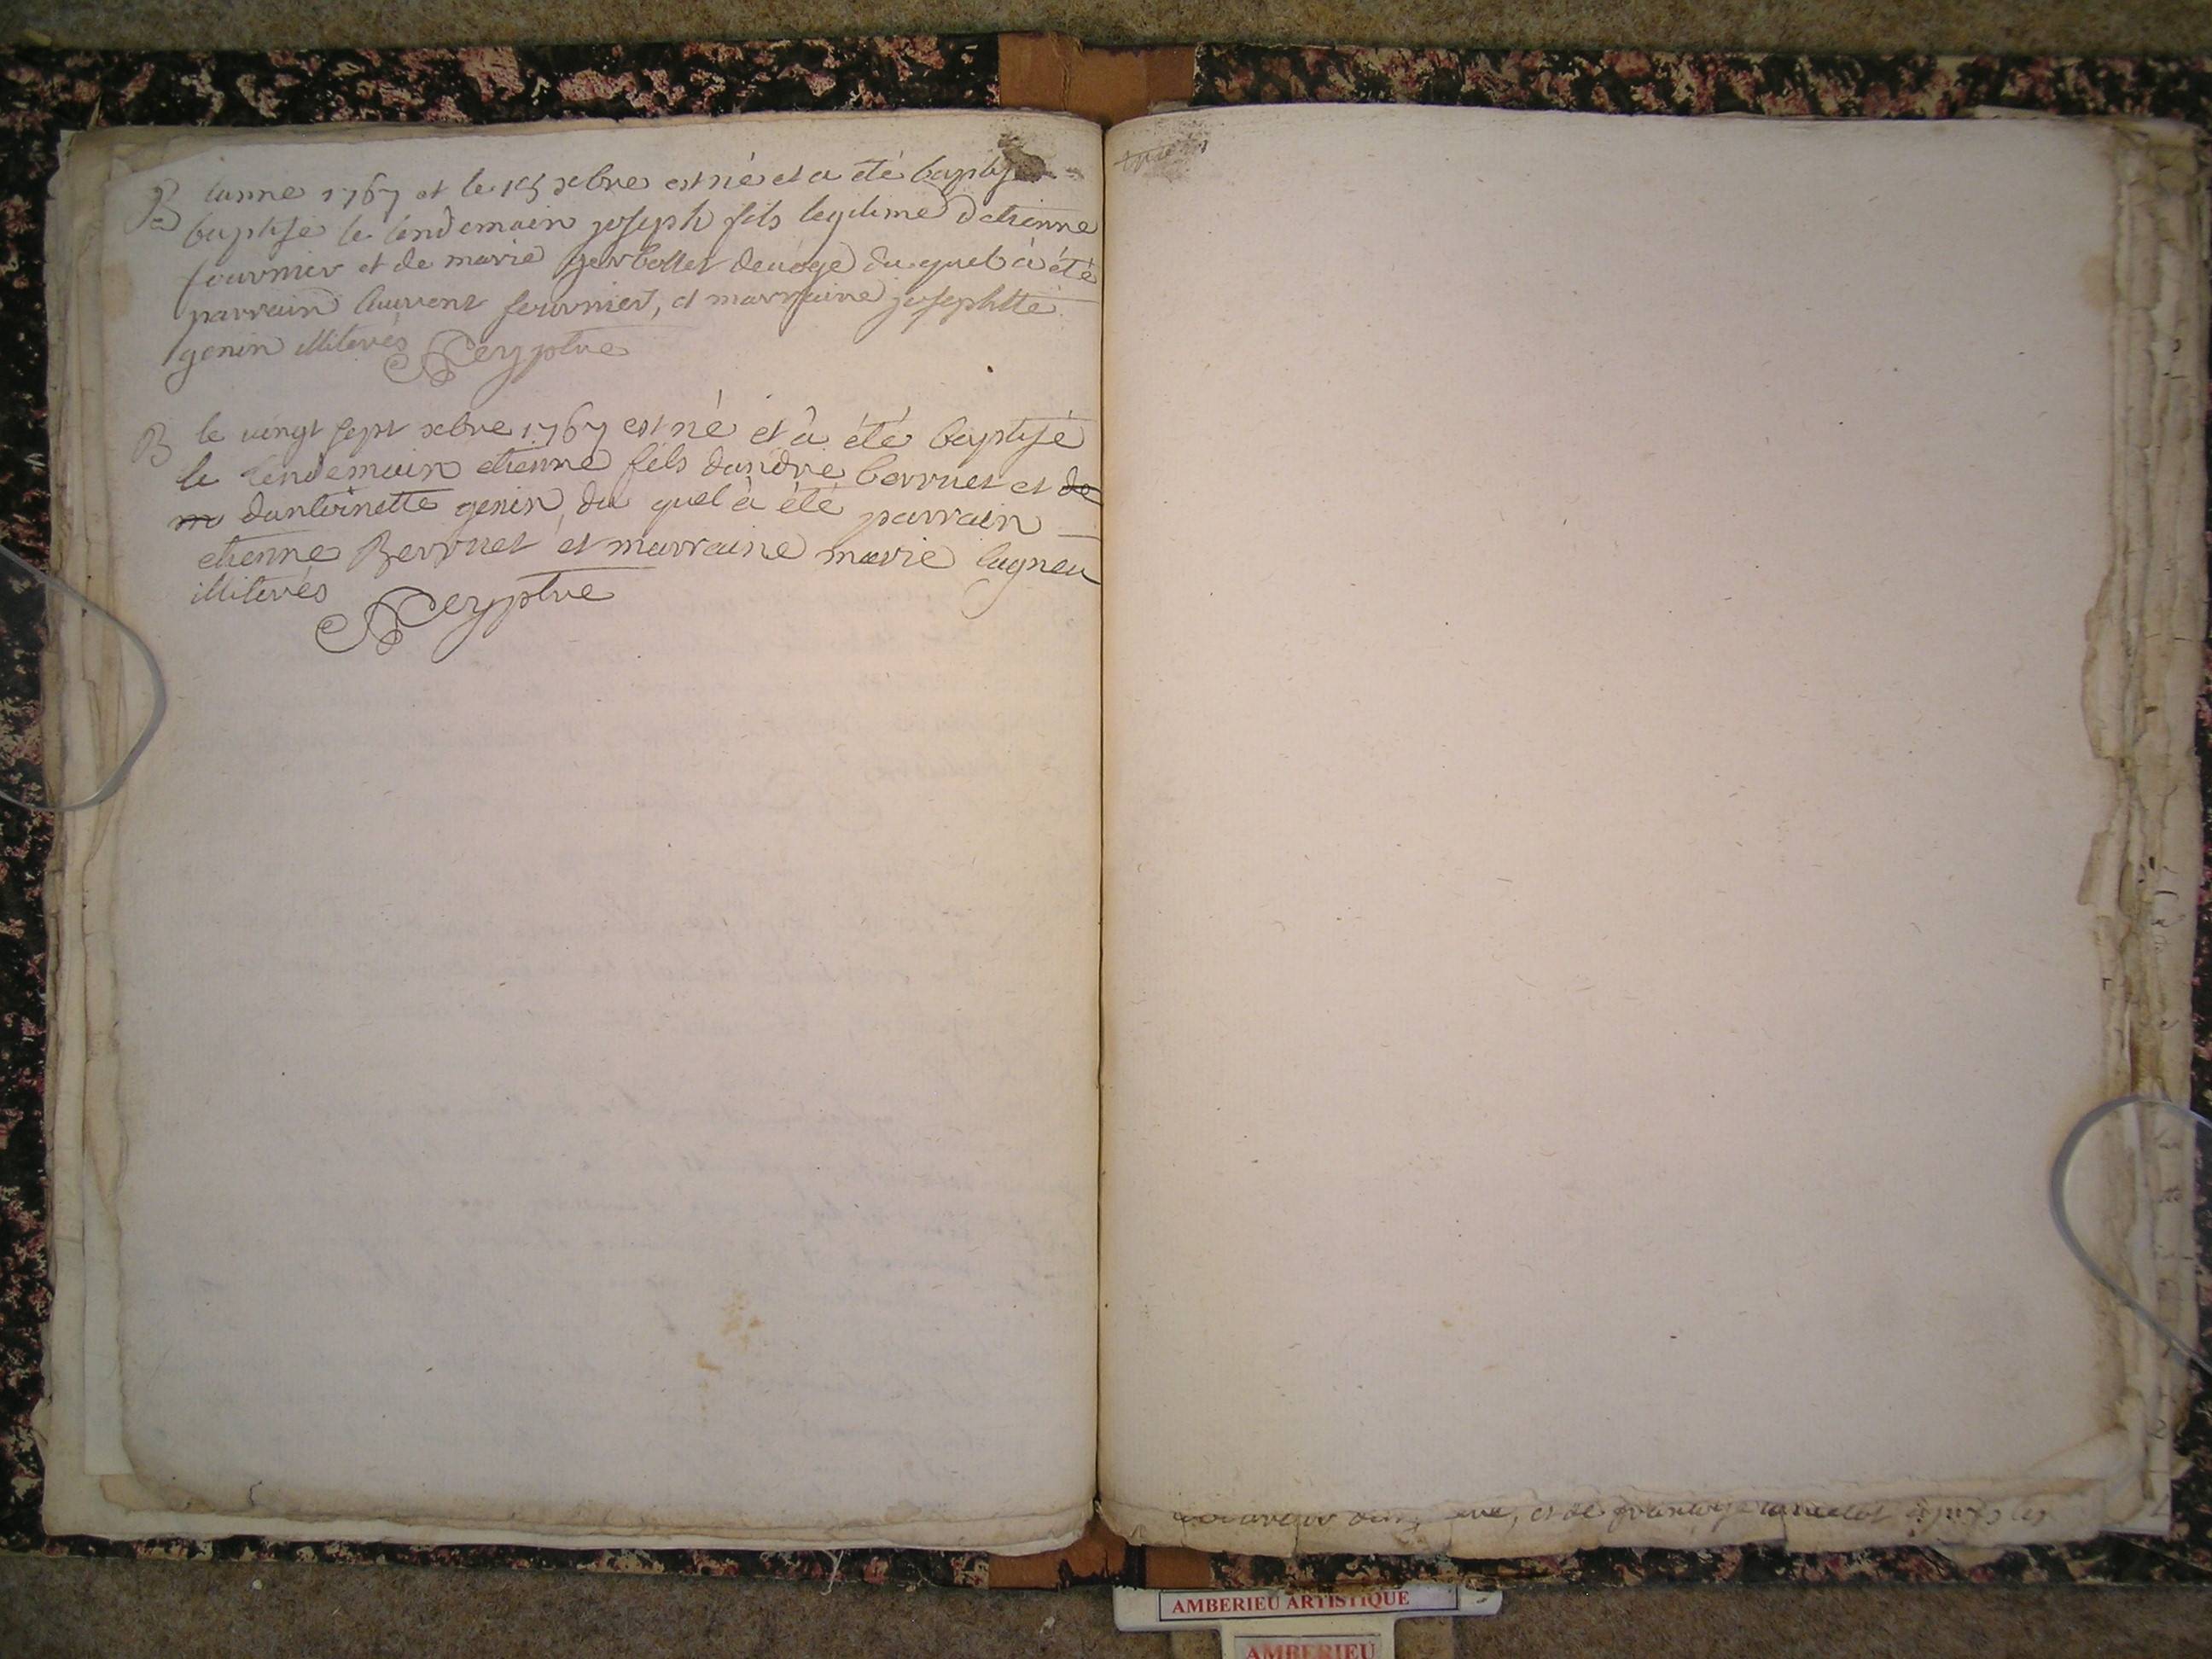 B
lanne 1767 et le 15 xbre est né et a été baptisé
baptisé le lendemain joseph fils legitime detienne
fournier et de marie gerbollet devoge du quel à été
parrain laurent fournier, et marraine josephtte
genin illiterés
Rey ptre
B
le vingt sept xbre 1767 est né et à été baptisé
le lendemain etienne fils dandré berruet et de
m dantoinette genin, du quel à été parrain
etienne Berruet et marraine marie lagneu
illiterés
Rey ptre
AMBERIEU ARTISTIQUE
AMBERIEU